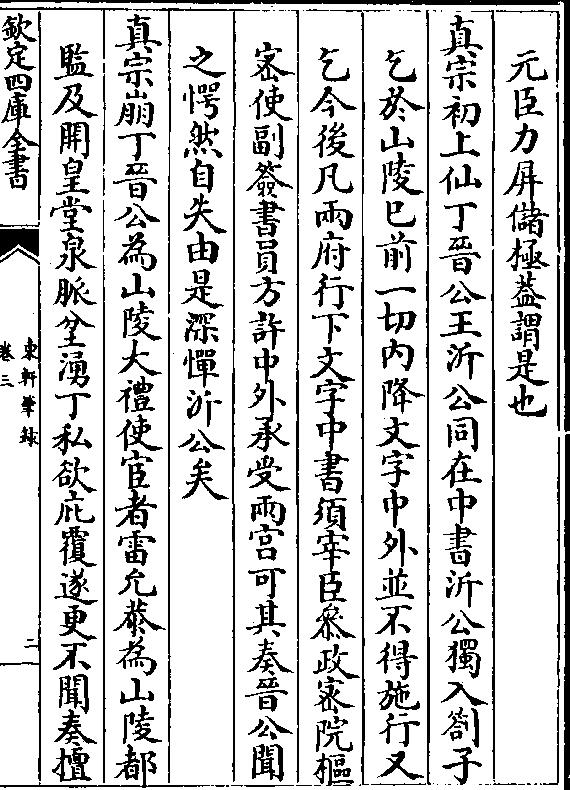 元臣力屏儲極蓋謂是也
真宗初上仙丁晉公王沂公同在中書沂公獨入劄子
乞於山陵已前一切内降文字中外並不得施行又
乞今後凡兩府行下文字中書須宰臣叅政密院樞
密使副簽書員方許中外承受兩宫可其奏晉公聞
之愕然自失由是深憚沂公矣
真宗崩丁晉公為山陵大禮使宦者雷允㳟為山陵都
監及開皇堂泉脈坌湧丁私欲庇覆遂更不聞奏擅
欽定四庫全書
東軒筆録
卷三
二